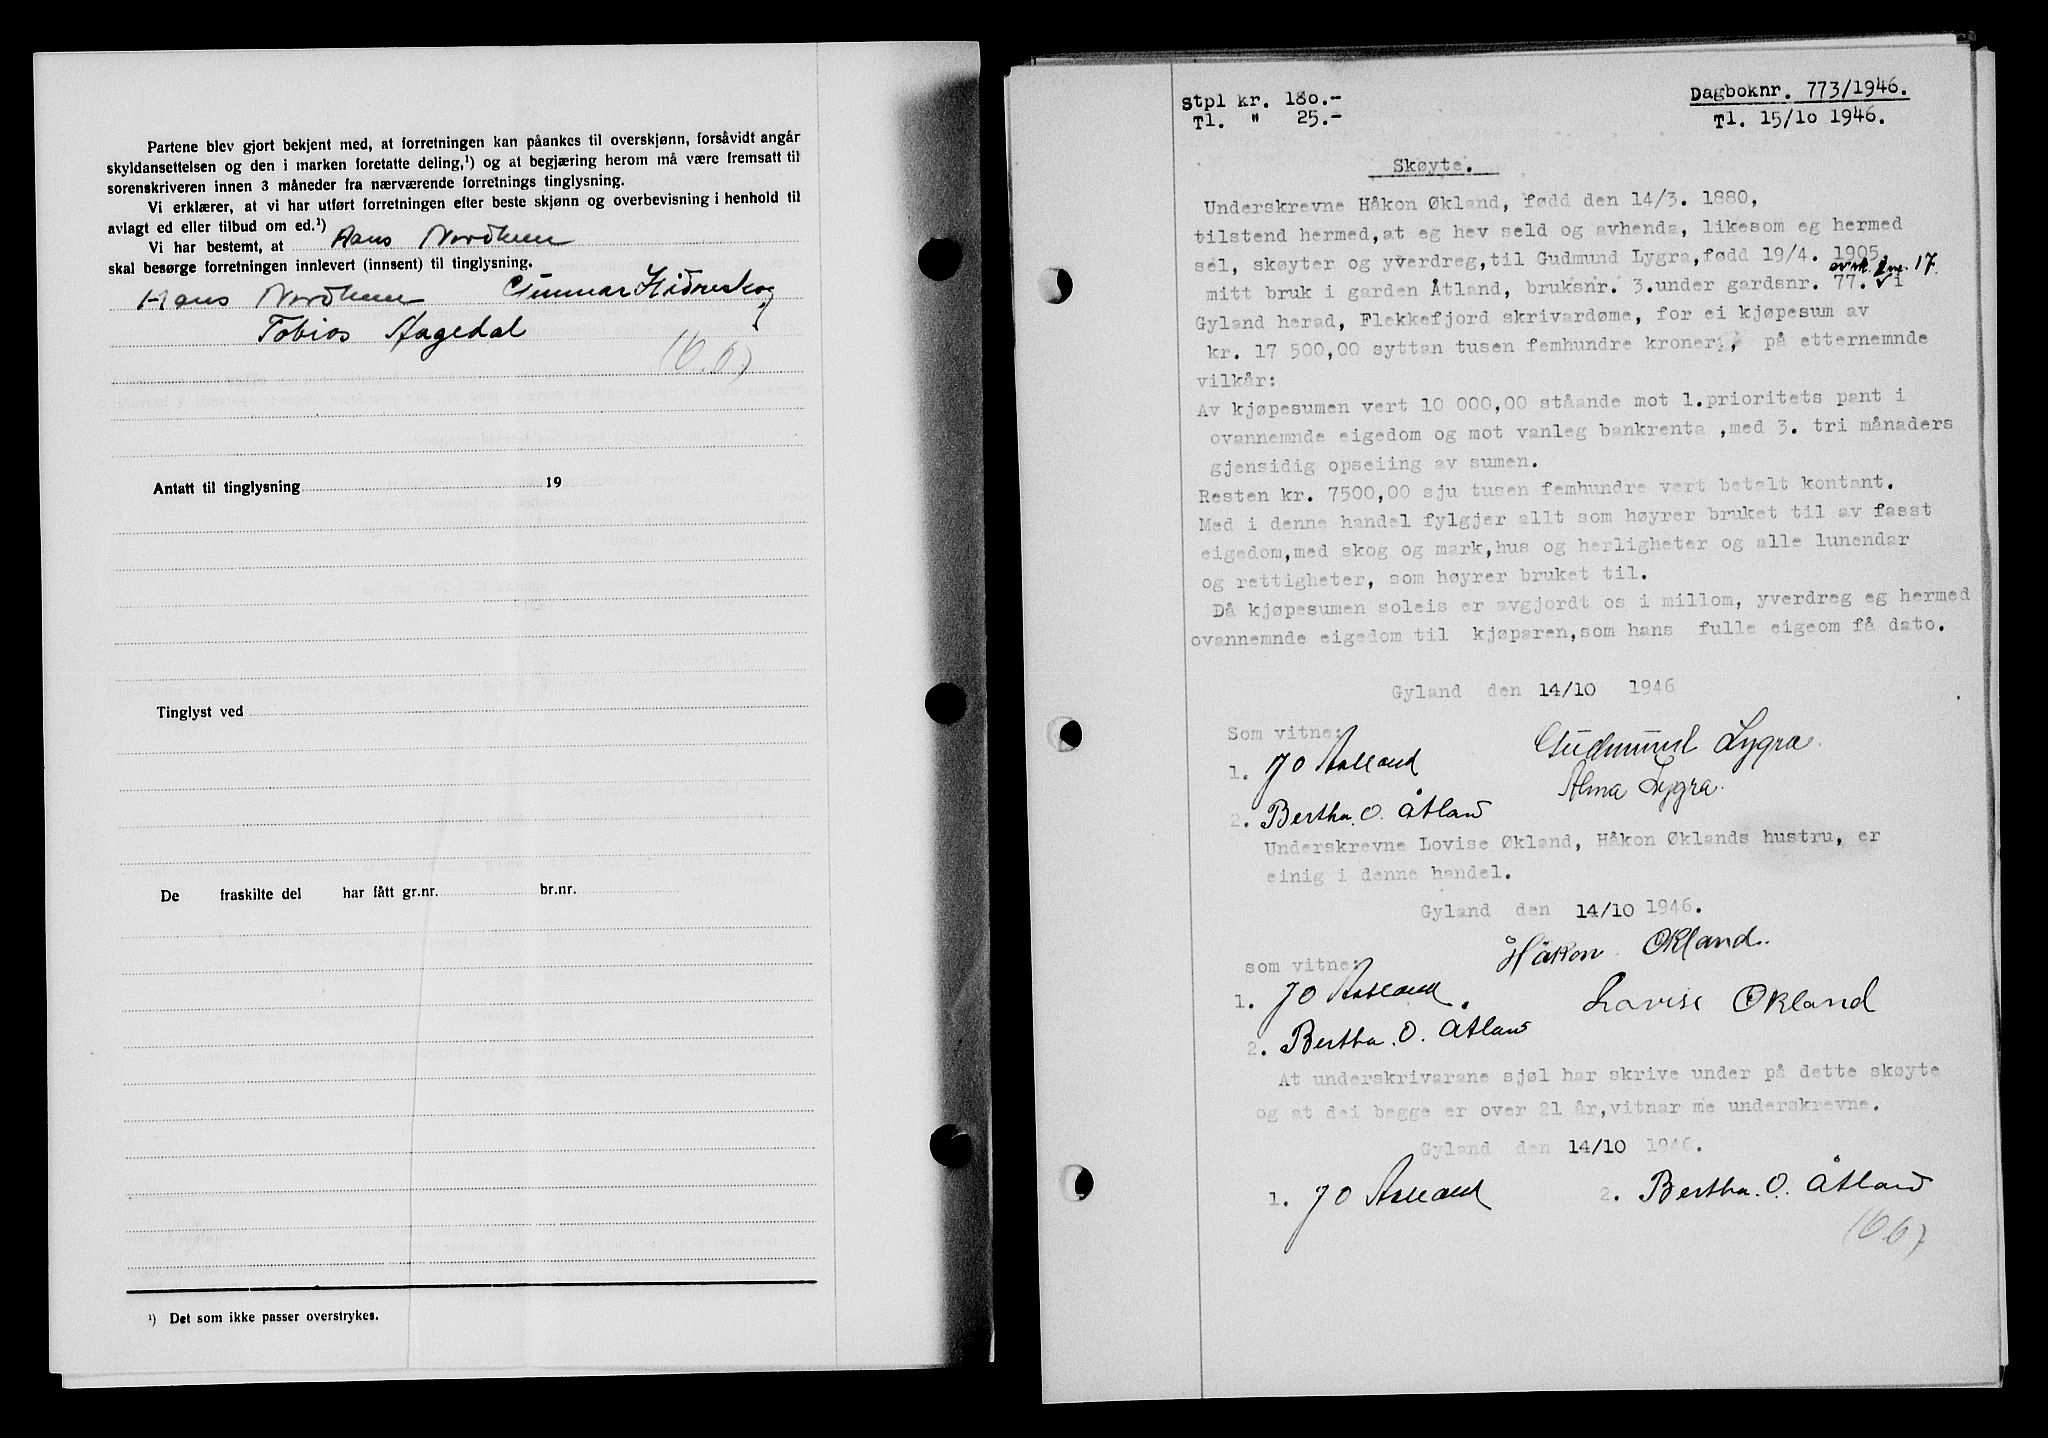 Partene blev gjort bekjent med, at forretningen kan påankes til overskjønn, forsåvidt angår
skyldansettelsen og den i marken foretatte deling,¹) og at begjæring herom må være fremsatt til
sorenskriveren innen 3 måneder fra nærværende forretnings tinglysning.
Vi erklærer, at vi har utført forretningen efter beste skjønn og overbevisning i henhold til
avlagt ed eller tilbud om ed.¹)
Vi har bestemt, at Hans Nordheim
skal besørge forretningen innlevert (innsent) til tinglysning.
Hans Nordheim Gunnar Hidreskog
Tobias Aagedal
Antatt til tinglysning 19
Tinglyst ved
De fraskilte del har fått gr.nr. br.nr.
¹) Det som ikke passer overstrykes.
Stpl kr. 180.-
Tl. " 25.-
Dagboknr. 773/1946.
Tl. 15/10 1946.
Skøyte.
Underskrevne Håkon Økland, fødd den 14/3. 1880,
tilstend hermed, at eg hev seld og avhenda, likesom eg hermed
sel, skøyter og yverdreg, til Gudmund Lygra, fød 19/4. 1905
mitt bruk i garden Åtland, bruksnr. 3.under gardsnr. 77. i
Gyland herad, Flekkefjord skrivardøme, for ei kjøpesum av
kr. 17 500,00 syttan tusen femhundre kroner, på etternemnde
vilkår:
Av kjøpesumen vert 10 000,00 ståande mot 1.prioritets pant i
ovannemnde eigedom og mot vanleg bankrenta ,med 3. tri månaders
gjensidig opseiing av sumen.
Resten kr. 7500,00 sju tusen femhundre vert betalt kontant.
Med i denne handel fylgjer allt som høyrer bruket til av fasst
eigedom, med skog og mark, hus og herligheter og alle lunendar
og rettigheter, som høyrer bruket til.
Då kjøpesumen soleis er avgjordt os i millom, yverdreg eg hermed
ovannemnde eigedom til kjøparen, som hans fulle eigeom få dato.
Gyland den 14/10 1946
Som vitne:
Gudmund Lygra
1. JO Aalland
Alma Lygra.
2. Bertha. O. Åtland
Underskrevne Lovise Økland, Håkon Øklands hustru, er
einig i denne handel.
Gyland den 14/10 1946.
Håkon Økland.
som vitne:
1. JO Aalland.
Lovise Økland
2. Bertha. O. Åtland
At underskrivarane sjøl har skrive under på dette skøyte
og at dei begge er over 21 år, vitnar me underskrevne.
Gyland den 14/10 1946.
1. JO Aalland 2. Bertha. O. Åtland